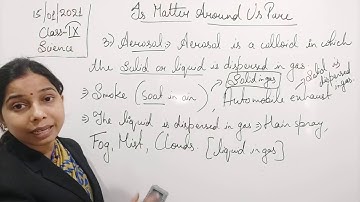 15/01/2021
Class-IX
Science
Is Matter Around Us Pure
3) Aerosol → Aerosol is a colloid in which
the Solid or liquid is dispersed in gas.
→ Smoke (Soot in air), Automobile exhaust
Solid in gas
Solid is
dispersed
in gas.
→ The liquid is dispersed in gas ⇒ Hair spray,
Fog, Mist, Clouds. [liquid in gas]